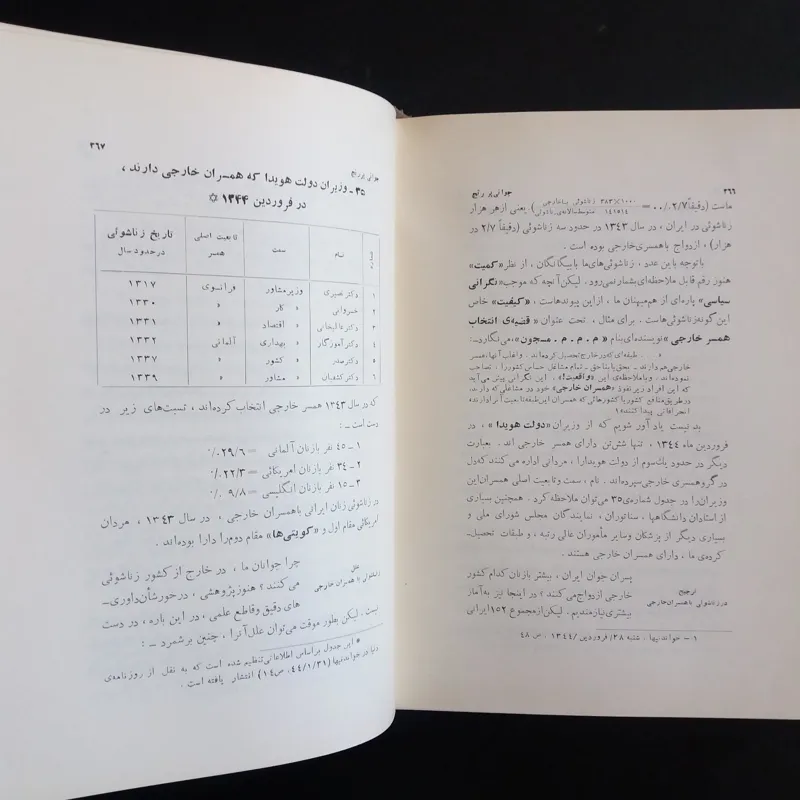 ۳۶۶ جوانی پر رنج
ماست (دقیقاً ۲/۷ ۰/۰۰ = ۱۰۰۰×۳۸۳ زناشوئی باخارجی / ۱۴۱۵۱۴ متوسط بالاهای زناشوئی). یعنی از هر هزار
زناشوئی در ایران ، در سال ۱۳۴۳ در حدود سه زناشوئی (دقیقاً ۲/۷ در
هزار) ، ازدواج با همسری خارجی بوده است .
با توجه با این عدد ، زناشوئی‌های ما با بیگانگان ، از نظر «کمیت»
هنوز رقم قابل ملاحظه‌ای بشمار نمی‌رود . لیکن آنچه که موجب «نگرانی
سیاسی» پاره‌ای از هم‌میهنان ما ، از این پیوندهاست ، «کیفیت» خاص
این گونه زناشوئی‌هاست . برای مثال ، تحت عنوان «قضیه‌ی انتخاب
همسر خارجی» نویسنده‌ای بنام «م . م . م . مسجون» ، می‌نگارد:ــ
« . طبقه‌ای که در خارج تحصیل کرده‌اند . و اغلب آنها ، همسر
خارجی هم دارند ـ بحق یا بناحق ـ تمام مشاغل حساس کشور را ، تصاحب
نموده‌اند . و با ملاحظه‌ی این «واقعیت!» ، این نگرانی پیش می‌آید
که این افراد زیر نفوذ «همسران خارجی» خود در مشاغلی که دارند ،
در طریق منافع کشور یا کشورهائی که همسران این طبقه تابعیت آنرا دارند ،
انحرافاتی پیدا کنند»۱
بد نیست یادآور شویم که از وزیران «دولت هویدا» ، در
فروردین ماه ۱۳۴۴ ، تنها شش تن دارای همسر خارجی اند . بعبارت
دیگر در حدود یک‌سوم از دولت هویدا را ، مردانی اداره می کنند که دل
در گرو همسری خارجی سپرده‌اند . نام ، سمت و تابعیت اصلی همسران این
وزیران را در جدول شماره‌ی ۳۵ می‌توان ملاحظه کرد . همچنین بسیاری
از استادان دانشگاهها ، سناتوران ، نمایندگان مجلس شورای ملی و
بسیاری دیگر از پزشکان و سایر مأموران عالی رتبه ، و طبقات تحصیل‌ـ
کرده‌ی ما ، دارای همسران خارجی هستند .
ترجیح
در زناشوئی با همسران خارجی
پسران جوان ایران ، بیشتر با زنان کدام کشور
خارجی ازدواج می‌کنند؟ در اینجا نیز به آمار
بیشتری نیازمندیم . لیکن از مجموع ۱۵۲ ایرانی
۱ – خواندنیها ، شنبه ۲۸/فروردین/۱۳۴۴ ، ص ۴۸
جوانی پر رنج ۳۶۷
۳۵ ـ وزیران دولت هویدا که همسران خارجی دارند ،
در فروردین ۱۳۴۴ ✡
شماره نام سمت تابعیت اصلی همسر تاریخ زناشوئی در حدود سال
۱ دکتر نصیری وزیر مشاور فرانسوی ۱۳۱۷
۲ خسروانی » کار » ۱۳۳۰
۳ دکتر عالیخانی » اقتصاد » ۱۳۳۱
۴ دکتر آموزگار » بهداری آلمانی ۱۳۳۲
۵ دکتر صدر » کشور » ۱۳۳۷
۶ دکتر کشفیان » مشاور » ۱۳۳۹
که در سال ۱۳۴۳ همسر خارجی انتخاب کرده‌اند ، نسبت‌های زیر در
دست است ـ :
۱ ــ ۴۵ نفر با زنان آلمانی = ۲۹/۶ ٪
۲ ــ ۳۴ نفر با زنان امریکائی = ۲۲/۳ ٪
۳ ــ ۱۵ نفر با زنان انگلیسی = ۹/۸ ٪
در زناشوئی زنان ایرانی با همسران خارجی ، در سال ۱۳۴۳ ، مردان
امریکائی مقام اول و «کویتی‌ها» مقام دوم را دارا بوده‌اند .
علل
زناشوئی با همسران خارجی
چرا جوانان ما ، در خارج از کشور زناشوئی
می کنند ؟ هنوز پژوهشی ، در خور شأن داوری‌ـ
های دقیق و قاطع علمی ، در این باره ، در دست
نیست . لیکن بطور موقت می‌توان علل آنرا ، چنین برشمرد ــ :
* این جدول بر اساس اطلاعاتی تنظیم شده است که به نقل از روزنامه‌ی
دنیا در خواندنیها (۴۴/۱/۳۱ ، ص ۱۴) انتشار یافته است .